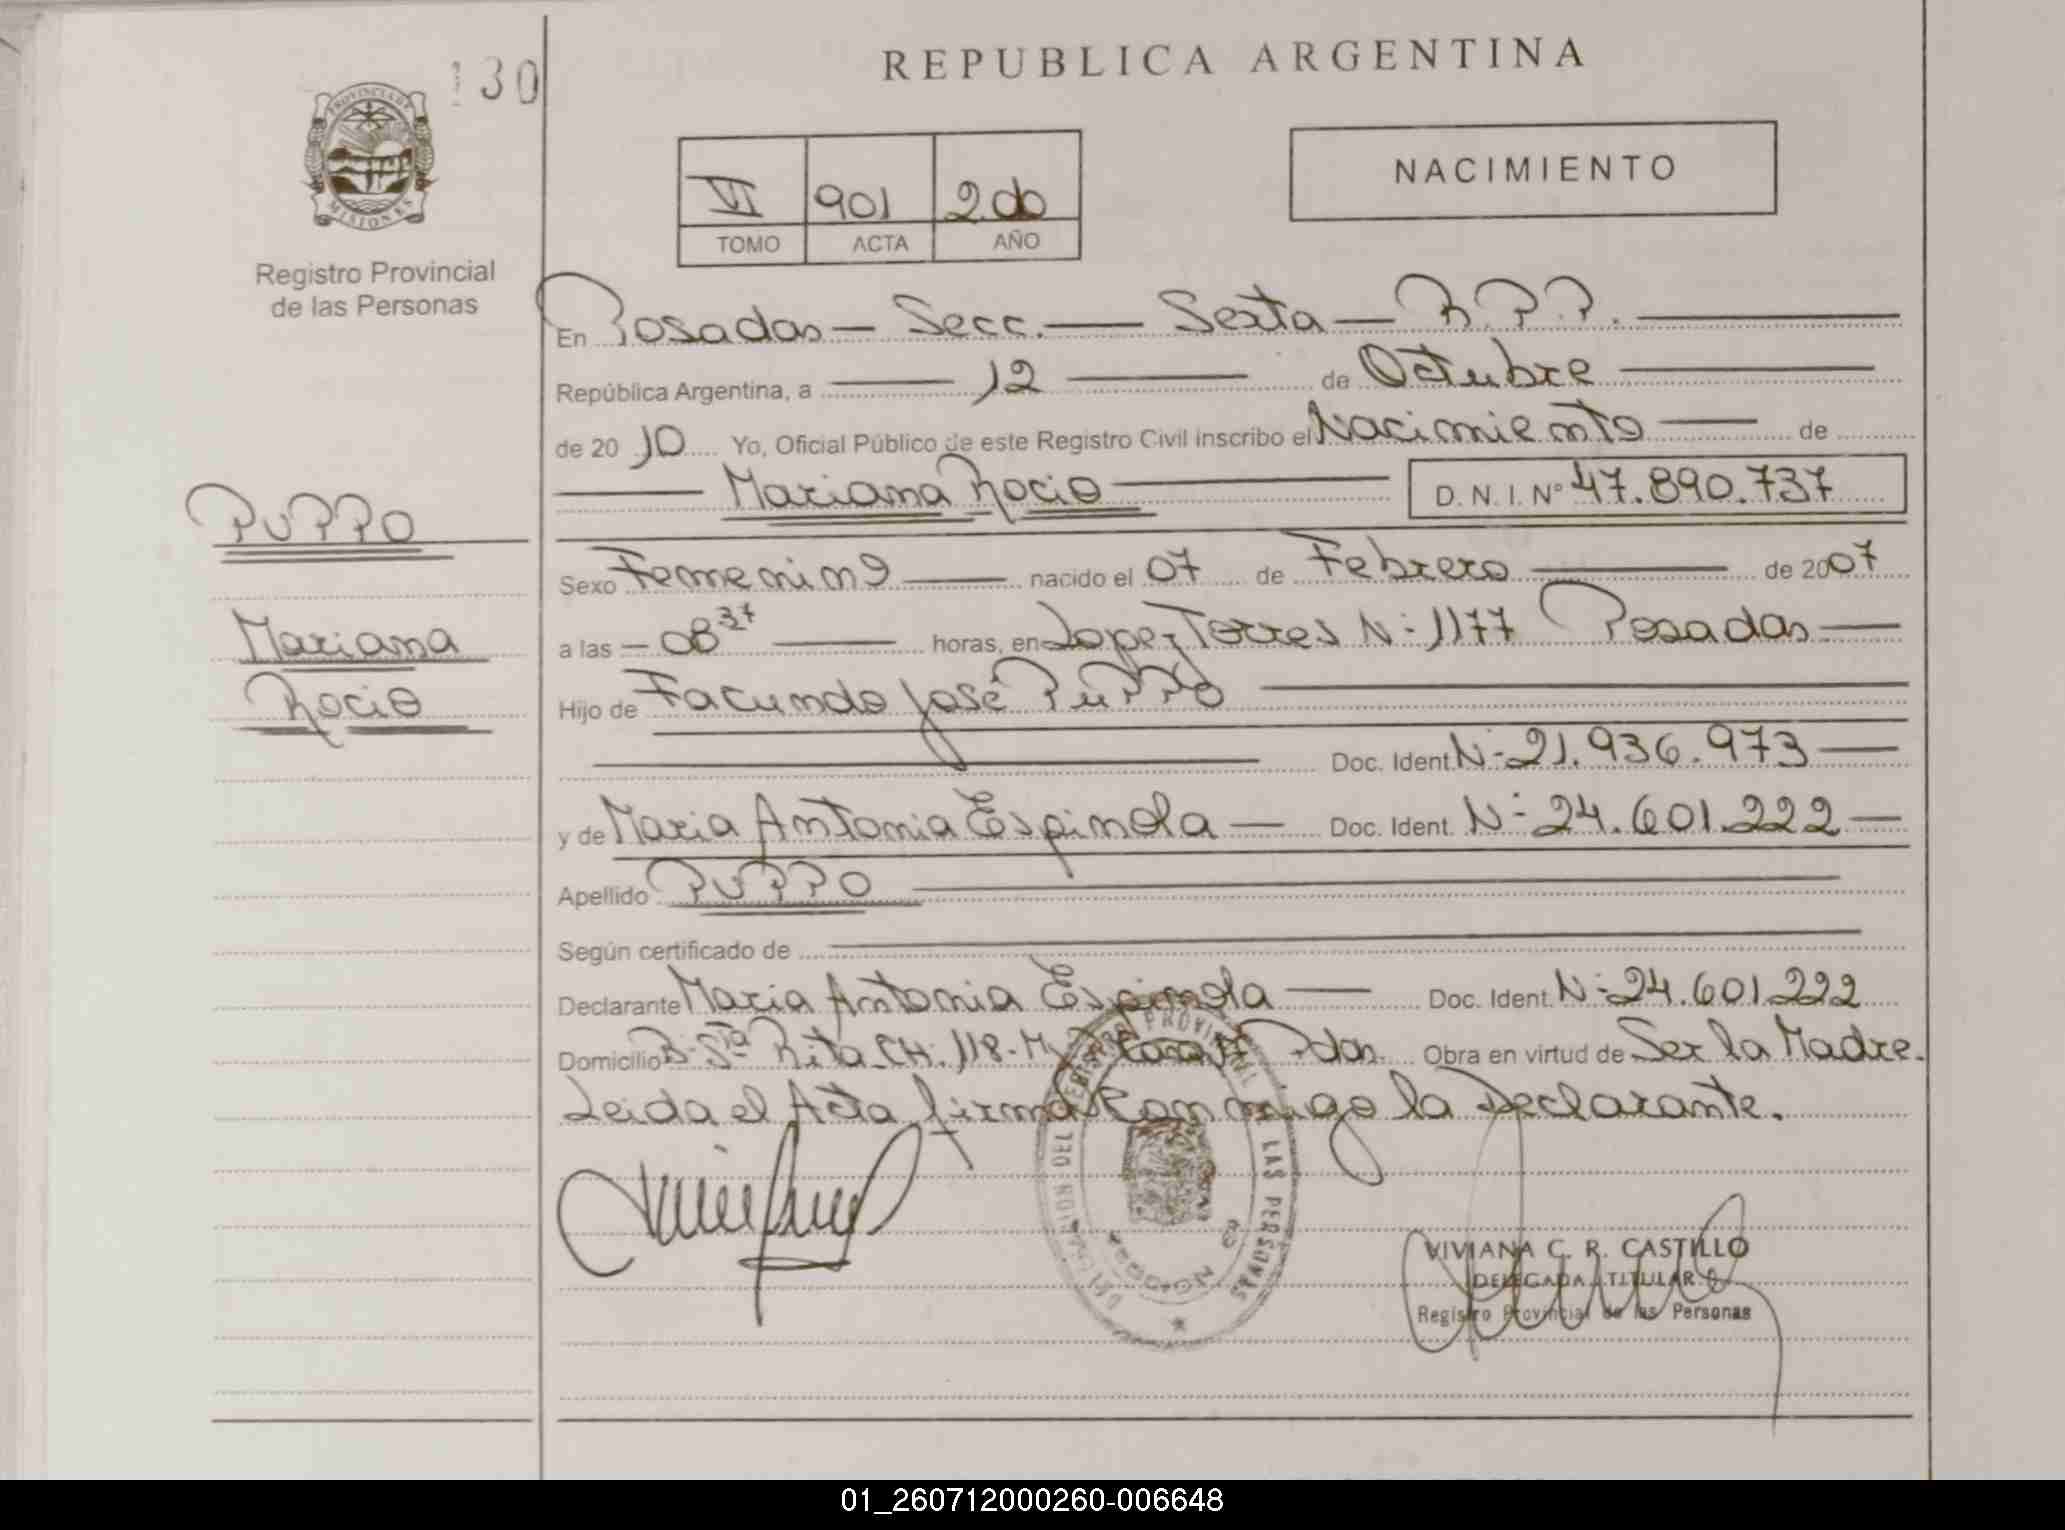 130
REPUBLICA ARGENTINA
PROVINCIA DE MISIONES
NACIMIENTO
VI 901
TOMO ACTA AÑO
Registro Provincial
de las Personas
En Posadas - Secc. - Sexta - R.P.P.
República Argentina, a 12 de Octubre
de 2010 Yo, Oficial Público de este Registro Civil inscribo el Nacimiento de
Mariana Rocio D.N.I. Nº 47.890.737
PUPPO
Mariana
Rocio
Sexo Femenino nacido el 07 de Febrero de 2007
a las - 08 37 horas, en Lopez Torres N- 1177 Posadas
Hijo de Facundo José PUPPO
Doc. Ident. N- 21.936.973
y de Maria Antonia Espinola - Doc. Ident. N- 24.601.222
Apellido PUPPO
Según certificado de
Declarante Maria Antonia Espinola - Doc. Ident. N- 24.601.222
Domicilio B- Sta Rita CH. 118- Pdas. Obra en virtud de Ser la Madre.
Leida el Acta firma conmigo la Declarante.
DELEGACION DEL REGISTRO PROVINCIAL DE LAS PERSONAS
VIVIANA C. R. CASTILLO
DELEGADA TITULAR
Registro Provincial de las Personas
01_260712000260-006648